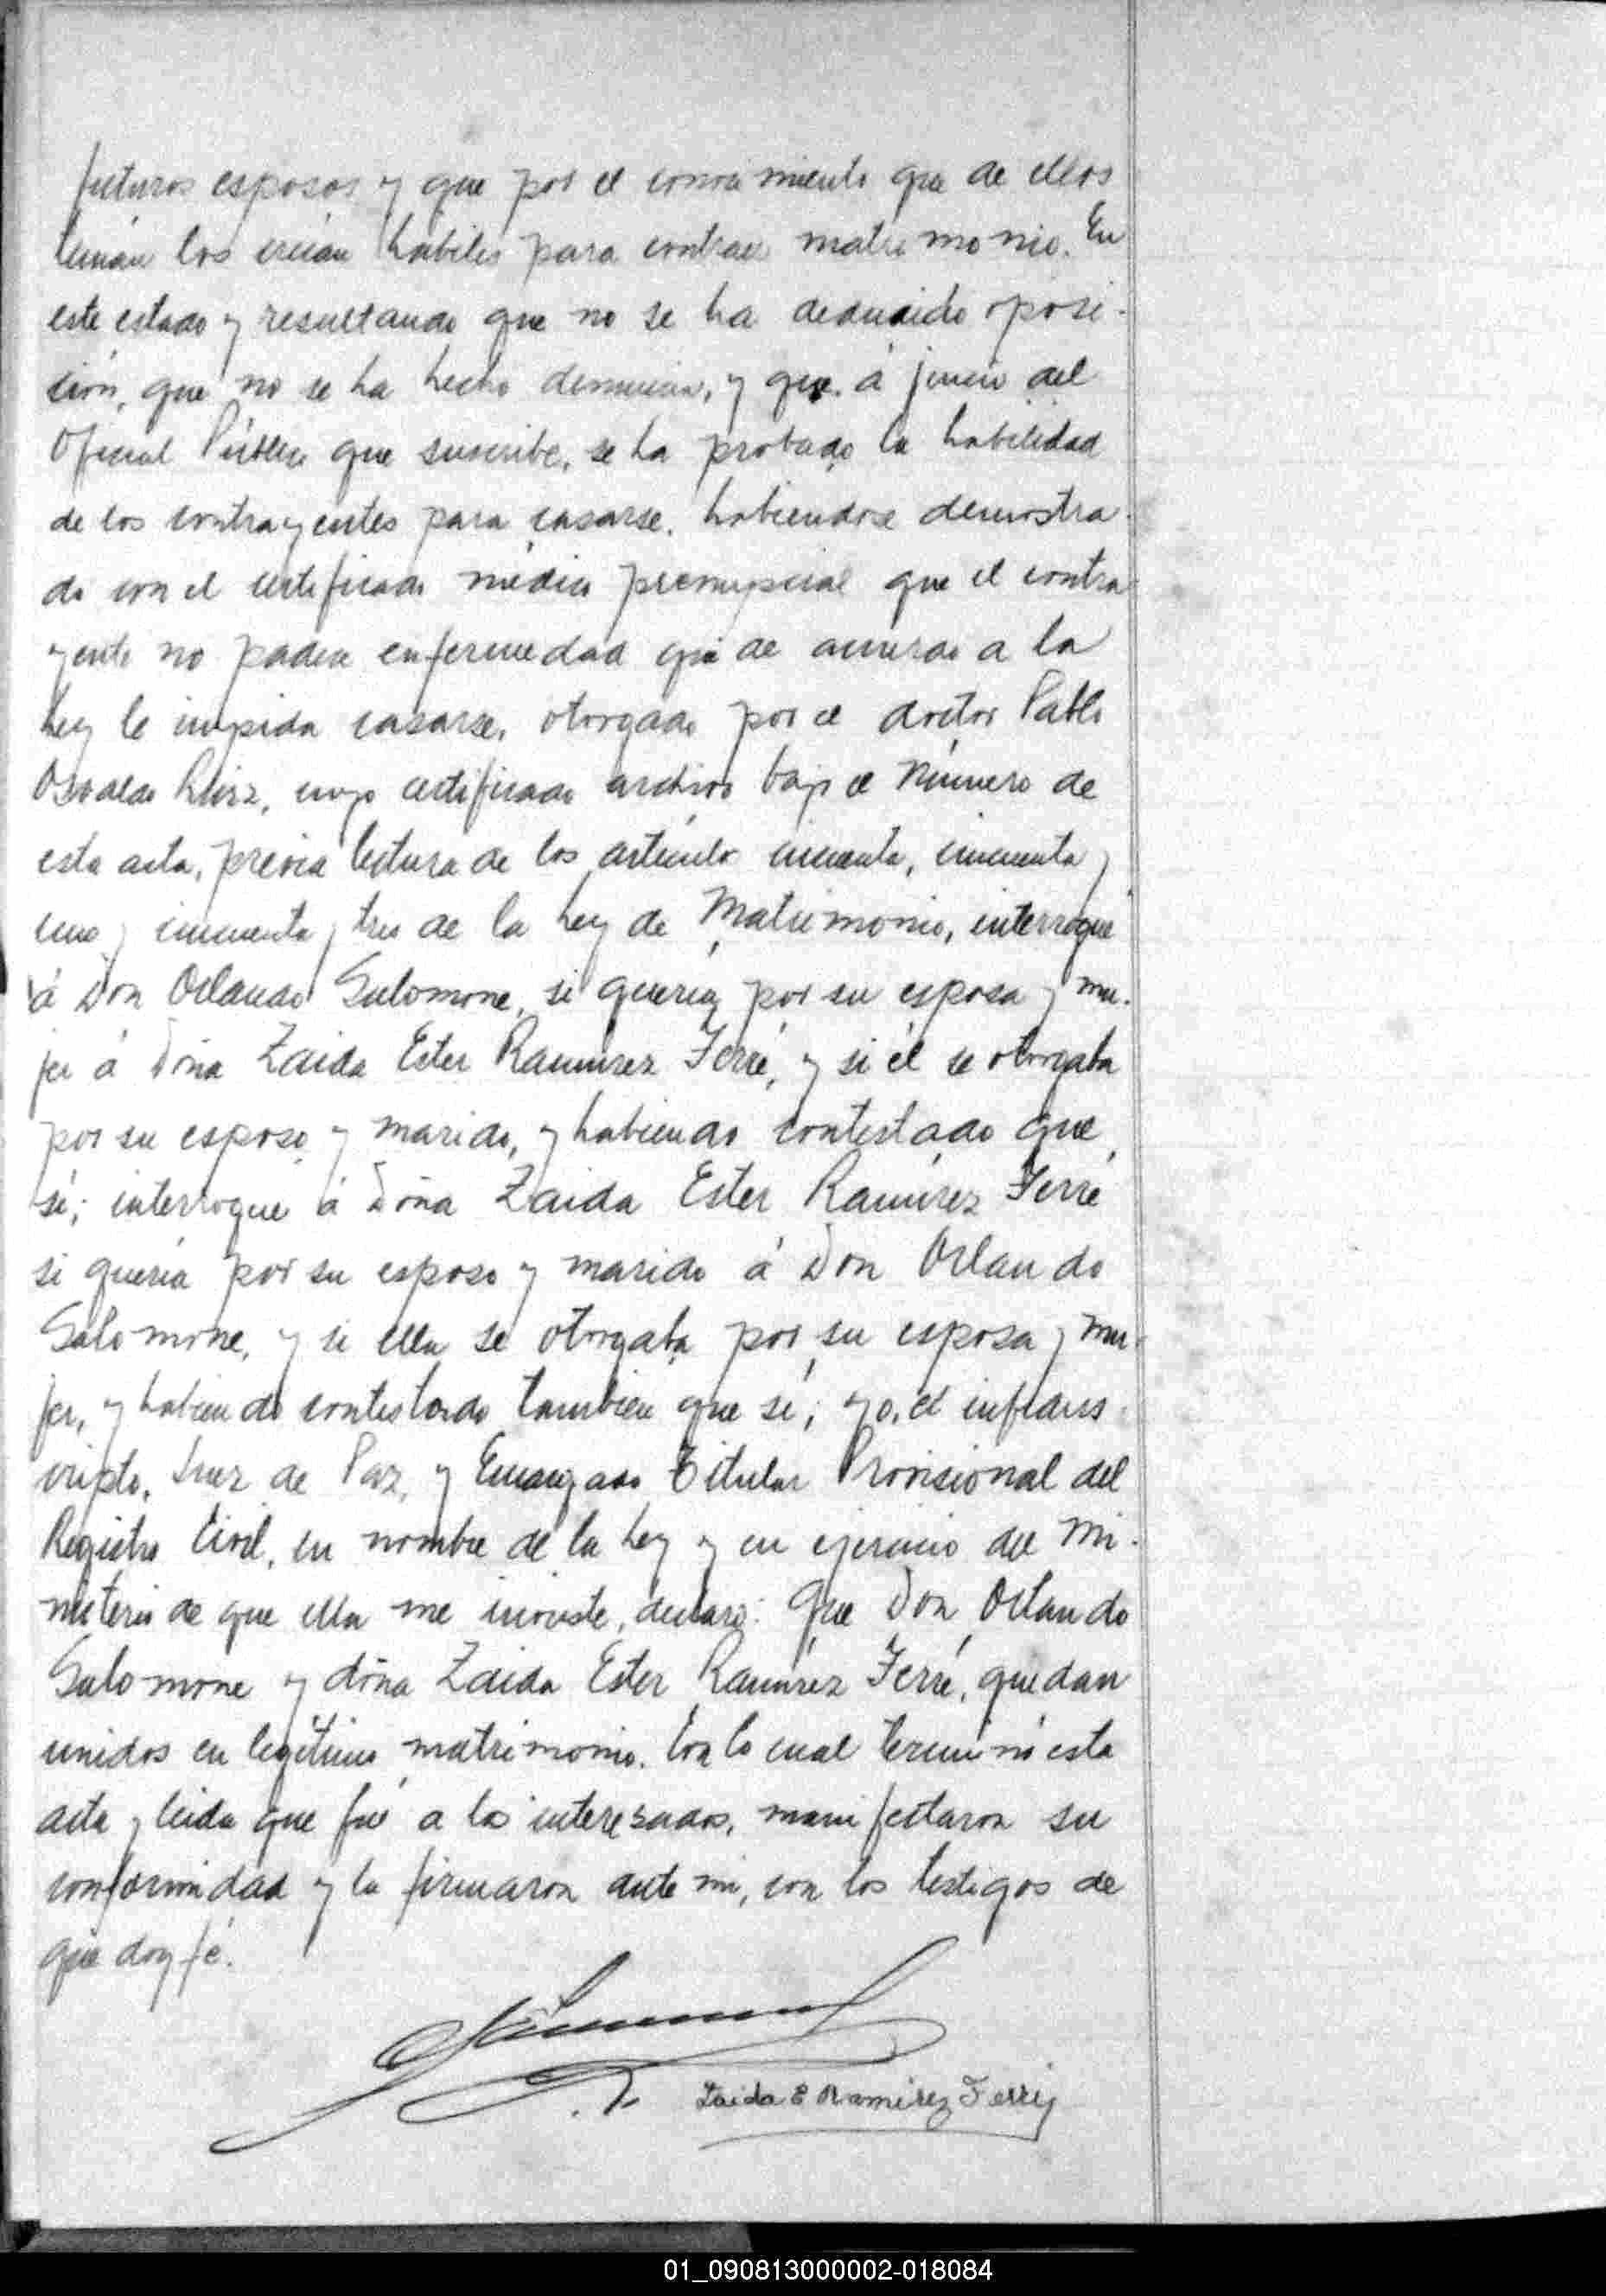 futuros esposos y que por el conocimiento que de ellos
tenían los creían hábiles para contraer matrimonio. En
este estado y resultando que no se ha deducido oposi-
ción, que no se ha hecho denuncia, y que á juicio del
Oficial Público que suscribe, se ha probado la habilidad
de los contrayentes para casarse, habiendose demostra-
do con el certificado médico prenupcial que el contra-
yente no padece enfermedad que de acuerdo a la
Ley le impida casarse, otorgado por el doctor Pablo
Osvaldo Ruiz, cuyo certificado archivo bajo el Número de
esta acta, previa lectura de los artículo cincuenta, cincuenta y
uno y cincuenta y tres de la Ley de Matrimonio, interrogué
á Don Orlando Salomone, si quería por su esposa y mu-
jer á Doña Zaida Ester Ramírez Ferré, y si él se otorgaba
por su esposo y marido, y habiendo contestado que
sí; interrogue á Doña Zaida Ester Ramírez Ferré
si quería por su esposo y marido á Don Orlando
Salomone, y si ella se otorgaba por su esposa y mu-
jer, y habiendo contestado también que sí; yo, el infrans-
cripto, Juez de Paz, y Encargado Titular Provisional del
Registro Civil, en nombre de la Ley y en ejercicio del Mi-
nisterio de que ella me inviste, declaro: Que Don Orlando
Salomone y doña Zaida Ester Ramírez Ferré, quedan
unidos en legítimo matrimonio. Con lo cual terminó esta
acta y leída que fué a los interesados, manifestaron su
conformidad y la firmaron ante mi, con los testigos de
que doy fé.
Zaida E Ramírez Ferré
01_090813000002-018084